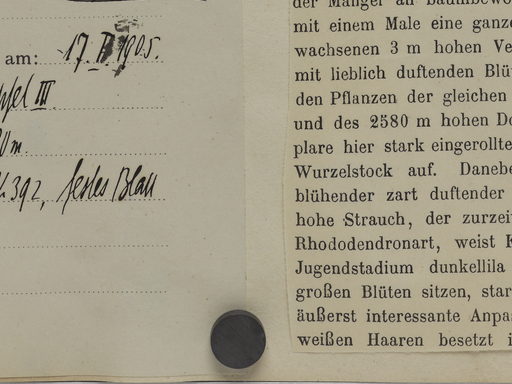 am: 17. II 1905.
III.
m.
392, helles Blau
der Mangel an baumbewo
mit einem Male eine ganz
wachsenen 3 m hohen Ve
mit lieblich duftenden Blü
den Pflanzen der gleichen
und des 2580 m hohen Do
plare hier stark eingerollte
Wurzelstock auf. Danebe
blühender zart duftender
hohe Strauch, der zurzei
Rhododendronart, weist
Jugendstadium dunkellila
großen Blüten sitzen, star
äußerst interessante Anpa
weißen Haaren besetzt i